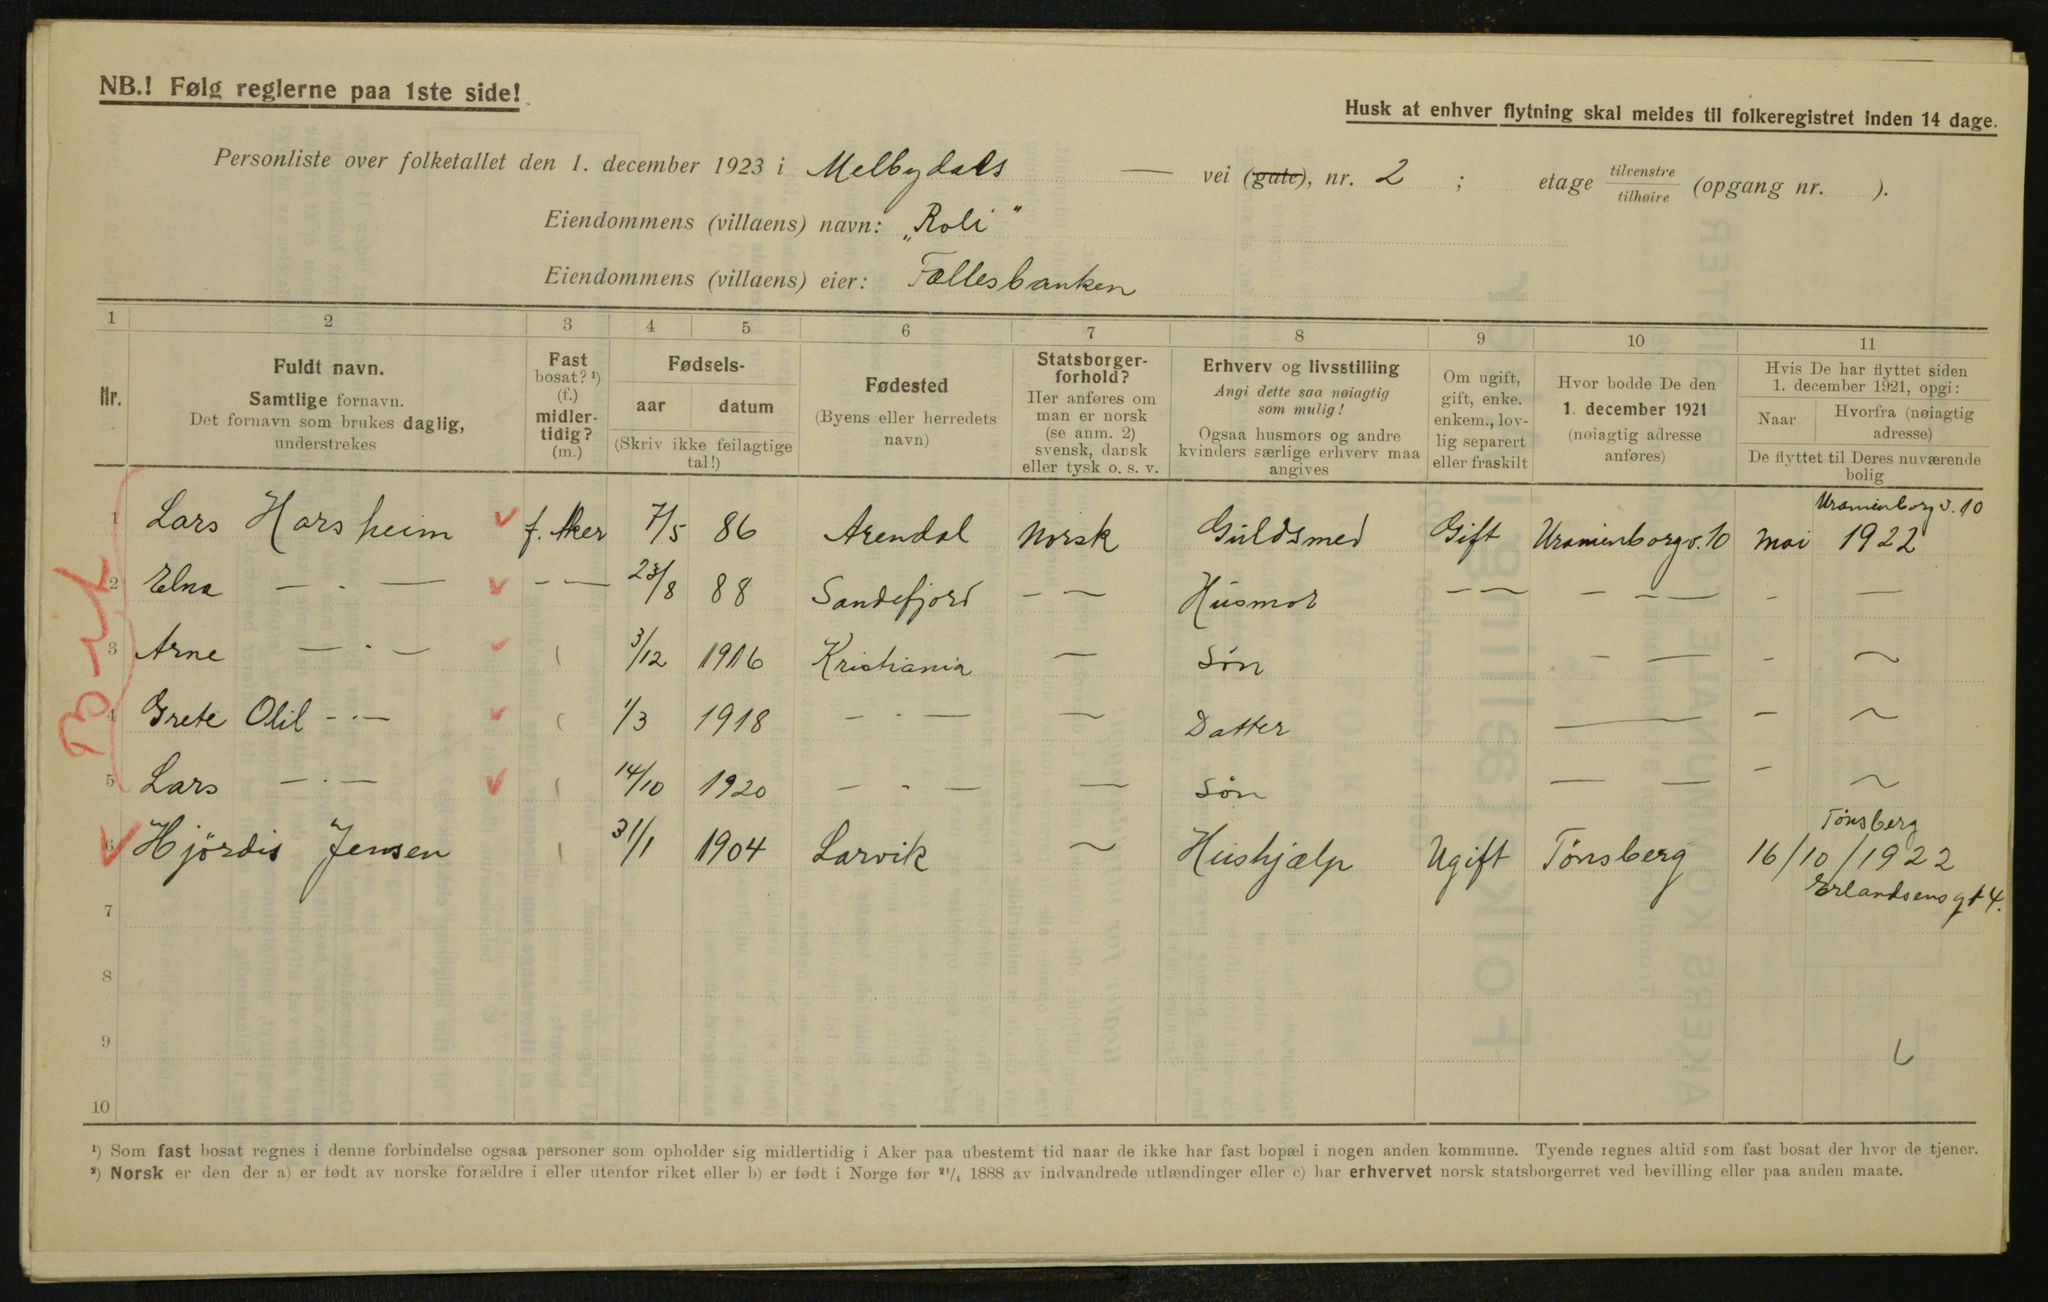 NB.! Følg reglerne paa 1ste side!
Husk at enhver flytning skal meldes til folkeregistret inden 14 dage.
Personliste over folketallet den 1. december 1923 i Melbydals — vei (gate), nr. 2 ; etage tilvenstre / tilhøire (opgang nr. ).
Eiendommens (villaens) navn: „Roli"
Eiendommens (villaens) eier: Fællesbanken
1 2 3 4 5 6 7 8 9 10 11
Nr.
Fuldt navn.
Samtlige fornavn.
Det fornavn som brukes daglig,
understrekes
Fast
bosat? ¹)
(f.)
midler-
tidig?
(m.)
Fødsels-
aar datum
(Skriv ikke feilagtige
tal!)
Fødested
(Byens eller herredets
navn)
Statsborger-
forhold?
Her anføres om
man er norsk
(se anm. 2)
svensk, dansk
eller tysk o. s. v.
Erhverv og livsstilling
Angi dette saa nøiagtig
som mulig!
Ogsaa husmors og andre
kvinders særlige erhverv maa
angives
Om ugift,
gift, enke.
enkem., lov-
lig separert
eller fraskilt
Hvor bodde De den
1. december 1921
(nøiagtig adresse
anføres)
Hvis De har flyttet siden
1. december 1921, opgi:
Naar Hvorfra (nøiagtig
adresse)
De flyttet til Deres nuværende
bolig
Uranienborgv. 10
1 Lars Harsheim f. Aker 7/5 86 Arendal Norsk Guldsmed Gift Uranienborgv. 10 Mai 1922
2 Elna — · — - — 23/8 88 Sandefjord - — Husmor - — - - — - —
3 Arne — · — 3/12 1916 Kristiania — Søn - — - —
4 Grete Olil - · — 1/3 1918 - · — — Datter — - —
5 Lars — · — 14/10 1920 — - — — Søn — — - —
Tønsberg
6 Hjördis Jensen 31/1 1904 Larvik — Hushjælp Ugift Tønsberg 16/10/1922
Erlandsens gt 4.
7
8
9
10
¹) Som fast bosat regnes i denne forbindelse ogsaa personer som opholder sig midlertidig i Aker paa ubestemt tid naar de ikke har fast bopæl i nogen anden kommune. Tyende regnes altid som fast bosat der hvor de tjener.
²) Norsk er den der a) er født av norske forældre i eller utenfor riket eller b) er født i Norge før ²¹/₄ 1888 av indvandrede utlændinger eller c) har erhvervet norsk statsborgerret ved bevilling eller paa anden maate.